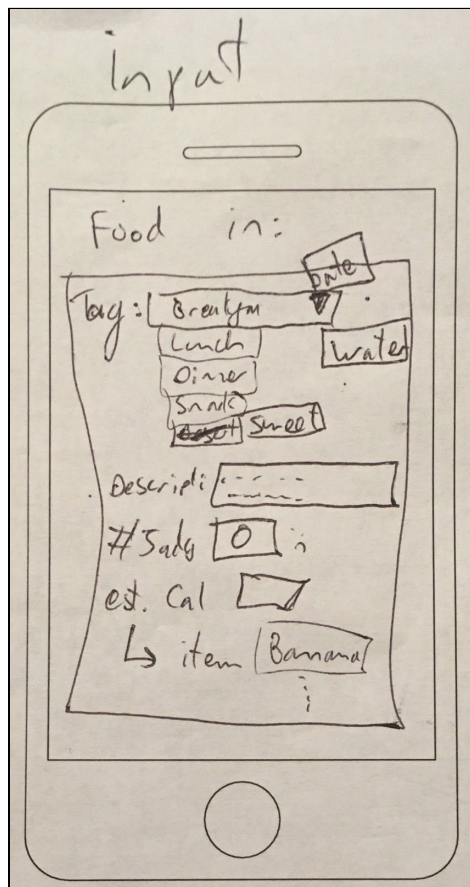 input
Food in:
Date
Tag: Breakfas
Lunch
Water
Dinner
Snack
Sweet
Descripti
#
0
est. Cal
↳ item Banana